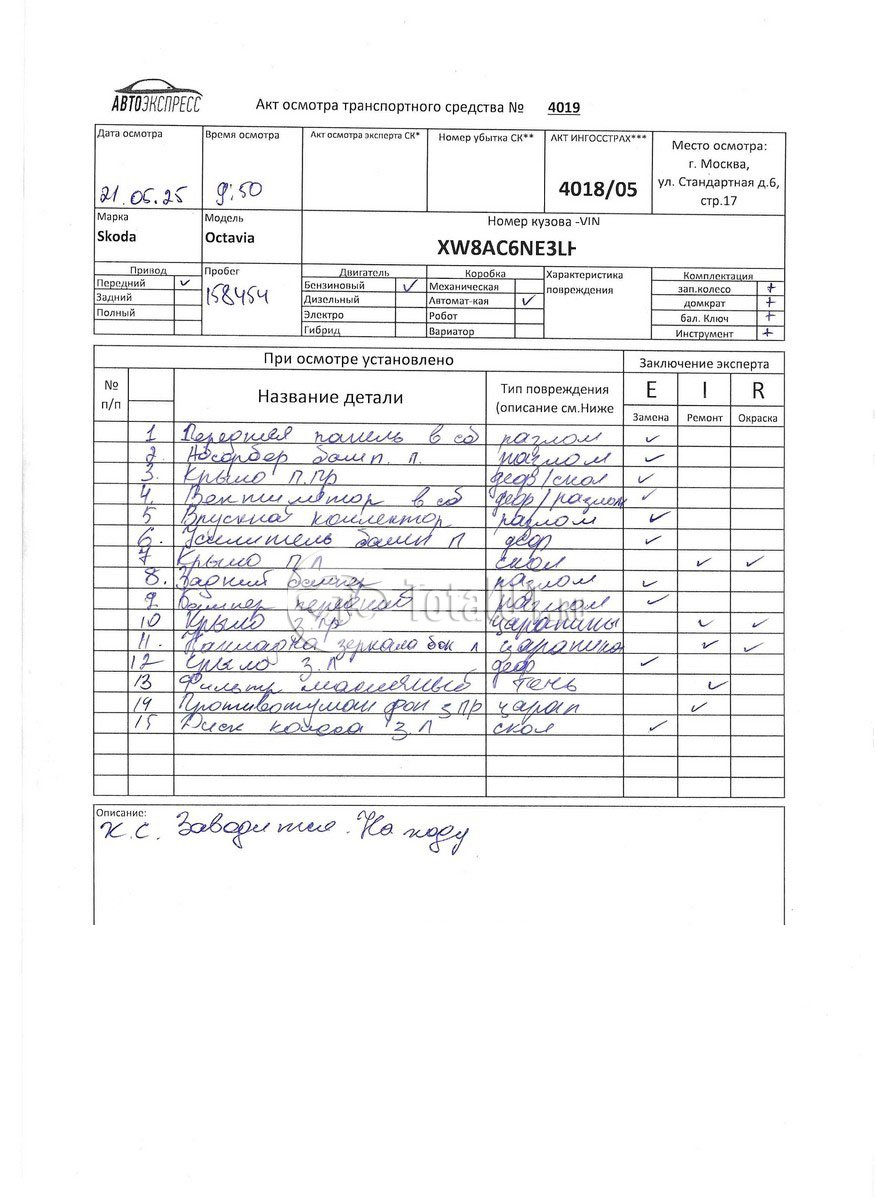 АВТОЭКСПРЕСС
Акт осмотра транспортного средства № 4019
Дата осмотра Время осмотра Акт осмотра эксперта СК* Номер убытка СК** АКТ ИНГОССТРАХ*** Место осмотра:
г. Москва,
21.05.25 9:50 4018/05 ул. Стандартная д.6,
стр.17
Марка Модель Номер кузова -VIN
Skoda Octavia XW8AC6NE3LH
Привод Пробег Двигатель Коробка Характеристика Комплектация
Передний ✓ 158454 Бензиновый ✓ Механическая повреждения зап.колесо +
Задний Дизельный Автомат-кая ✓ домкрат +
Полный Электро Робот бал. Ключ +
Гибрид Вариатор Инструмент +
При осмотре установлено Заключение эксперта
№ Название детали Тип повреждения E I R
п/п (описание см.Ниже Замена Ремонт Окраска
1 Передняя панель в сб разлом ✓
2. Абсорбер бамп. п. разлом ✓
3. Крыло п.пр деф/скол ✓
4. Вентилятор в сб деф/разлом ✓
5 Впускной коллектор разлом ✓
6. Усилитель бамп п деф ✓
7 Крыло п.л скол ✓ ✓
8. Задний бампер разлом ✓
9 Бампер передний разлом ✓
10 Крыло з.пр царапины ✓ ✓
11. Накладка зеркала бок л царапина ✓ ✓
12 Крыло з.л деф ✓
13 Фильтр масляный течь ✓
14 Противотуман фон з ПР царап ✓
15 Диск колеса з.л скол ✓
Total01.ru
Описание:
К.С. Заводится. На ходу